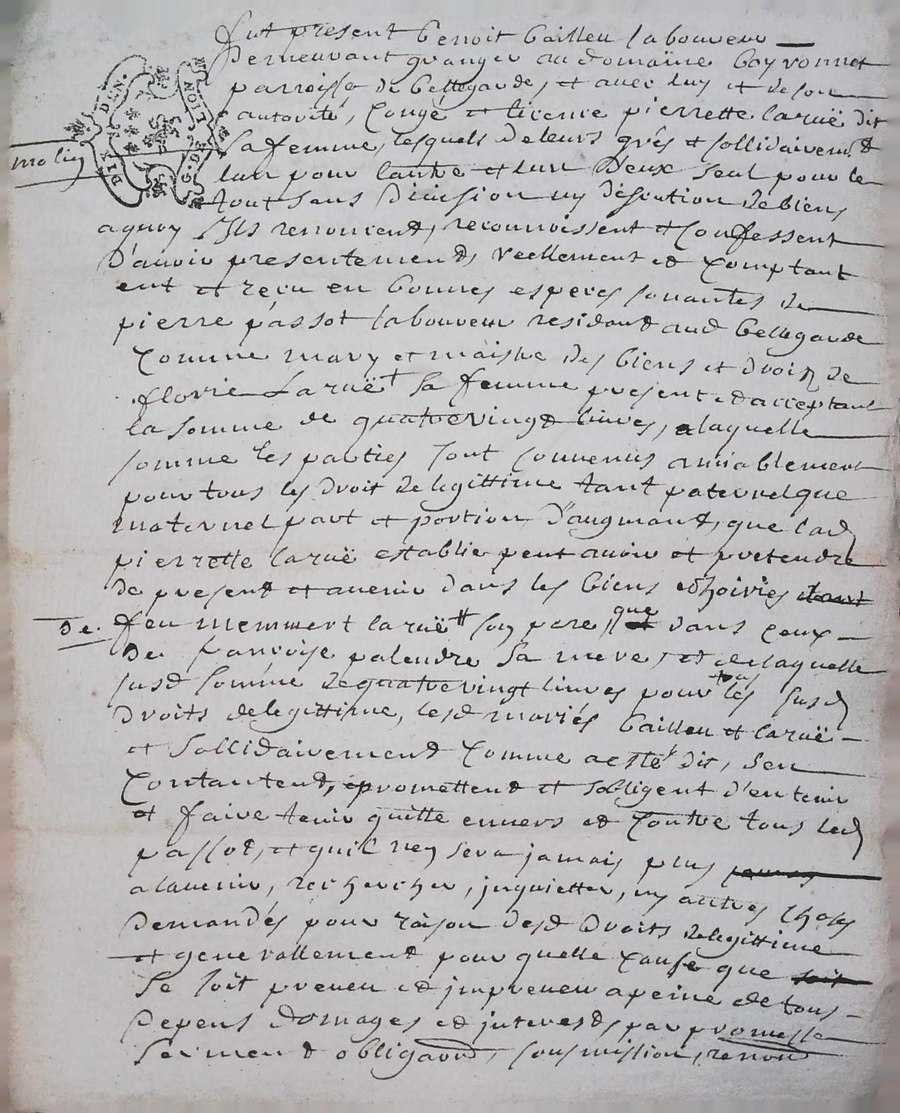 fut present benoit bailleu laboureur
demeurant granger au domaine bayronnet
parroisse de bellegarde, et avec luy et de son
autorité, Congé et licence pierrette laruë dit
DIX DEN. G. DE LION
molin
Sa femme, lesquels de leurs grés et sollidairemt et
lun pour lautre et lun Deux seul pour le
tout sans Division ny discution de biens
aquoy Ils renoncent, reconnoissent et Confessent
D'avoir presentement, reellement et Comptant
eut et recu en bonnes especes sonantes de
pierre passot laboureur residant aud bellegarde
Comme mary et maistre des biens et droits de
florie Laruë + sa femme present et acceptant
la somme de quatrevingt livres, a laquelle
somme les parties sont convenus amiablement
pour tous les Droit de legittime tant paternel que
maternel part et portion D'augmant, que lad
pierrette laruë establie peut avoir et pretendre
de present et avenir dans les biens et hoiries
De. feu memmert laruë # son pere, que dans ceux
De francoise palendre sa mere, et de laquelle
susd somme de quatrevingt livres pour tous les susd
Droits de legittime, lesd mariés bailleu et laruë
et sollidairement Comme a esté dit, sen
Contantent, promettent et sobligent d'en tenir
et faire tenir quitte envers et Contre tous led
passot, et quil ney sera jamais plus
alavenir, rechercher, inquietter, ny autres choses
Demandés pour raison desd Droits de legittime
et generallement pour quelle cause que
Se soit preveu et impreveu apeine de tous
Depens domages et interests, par promesse
serment obligaõn, sousmission, renon